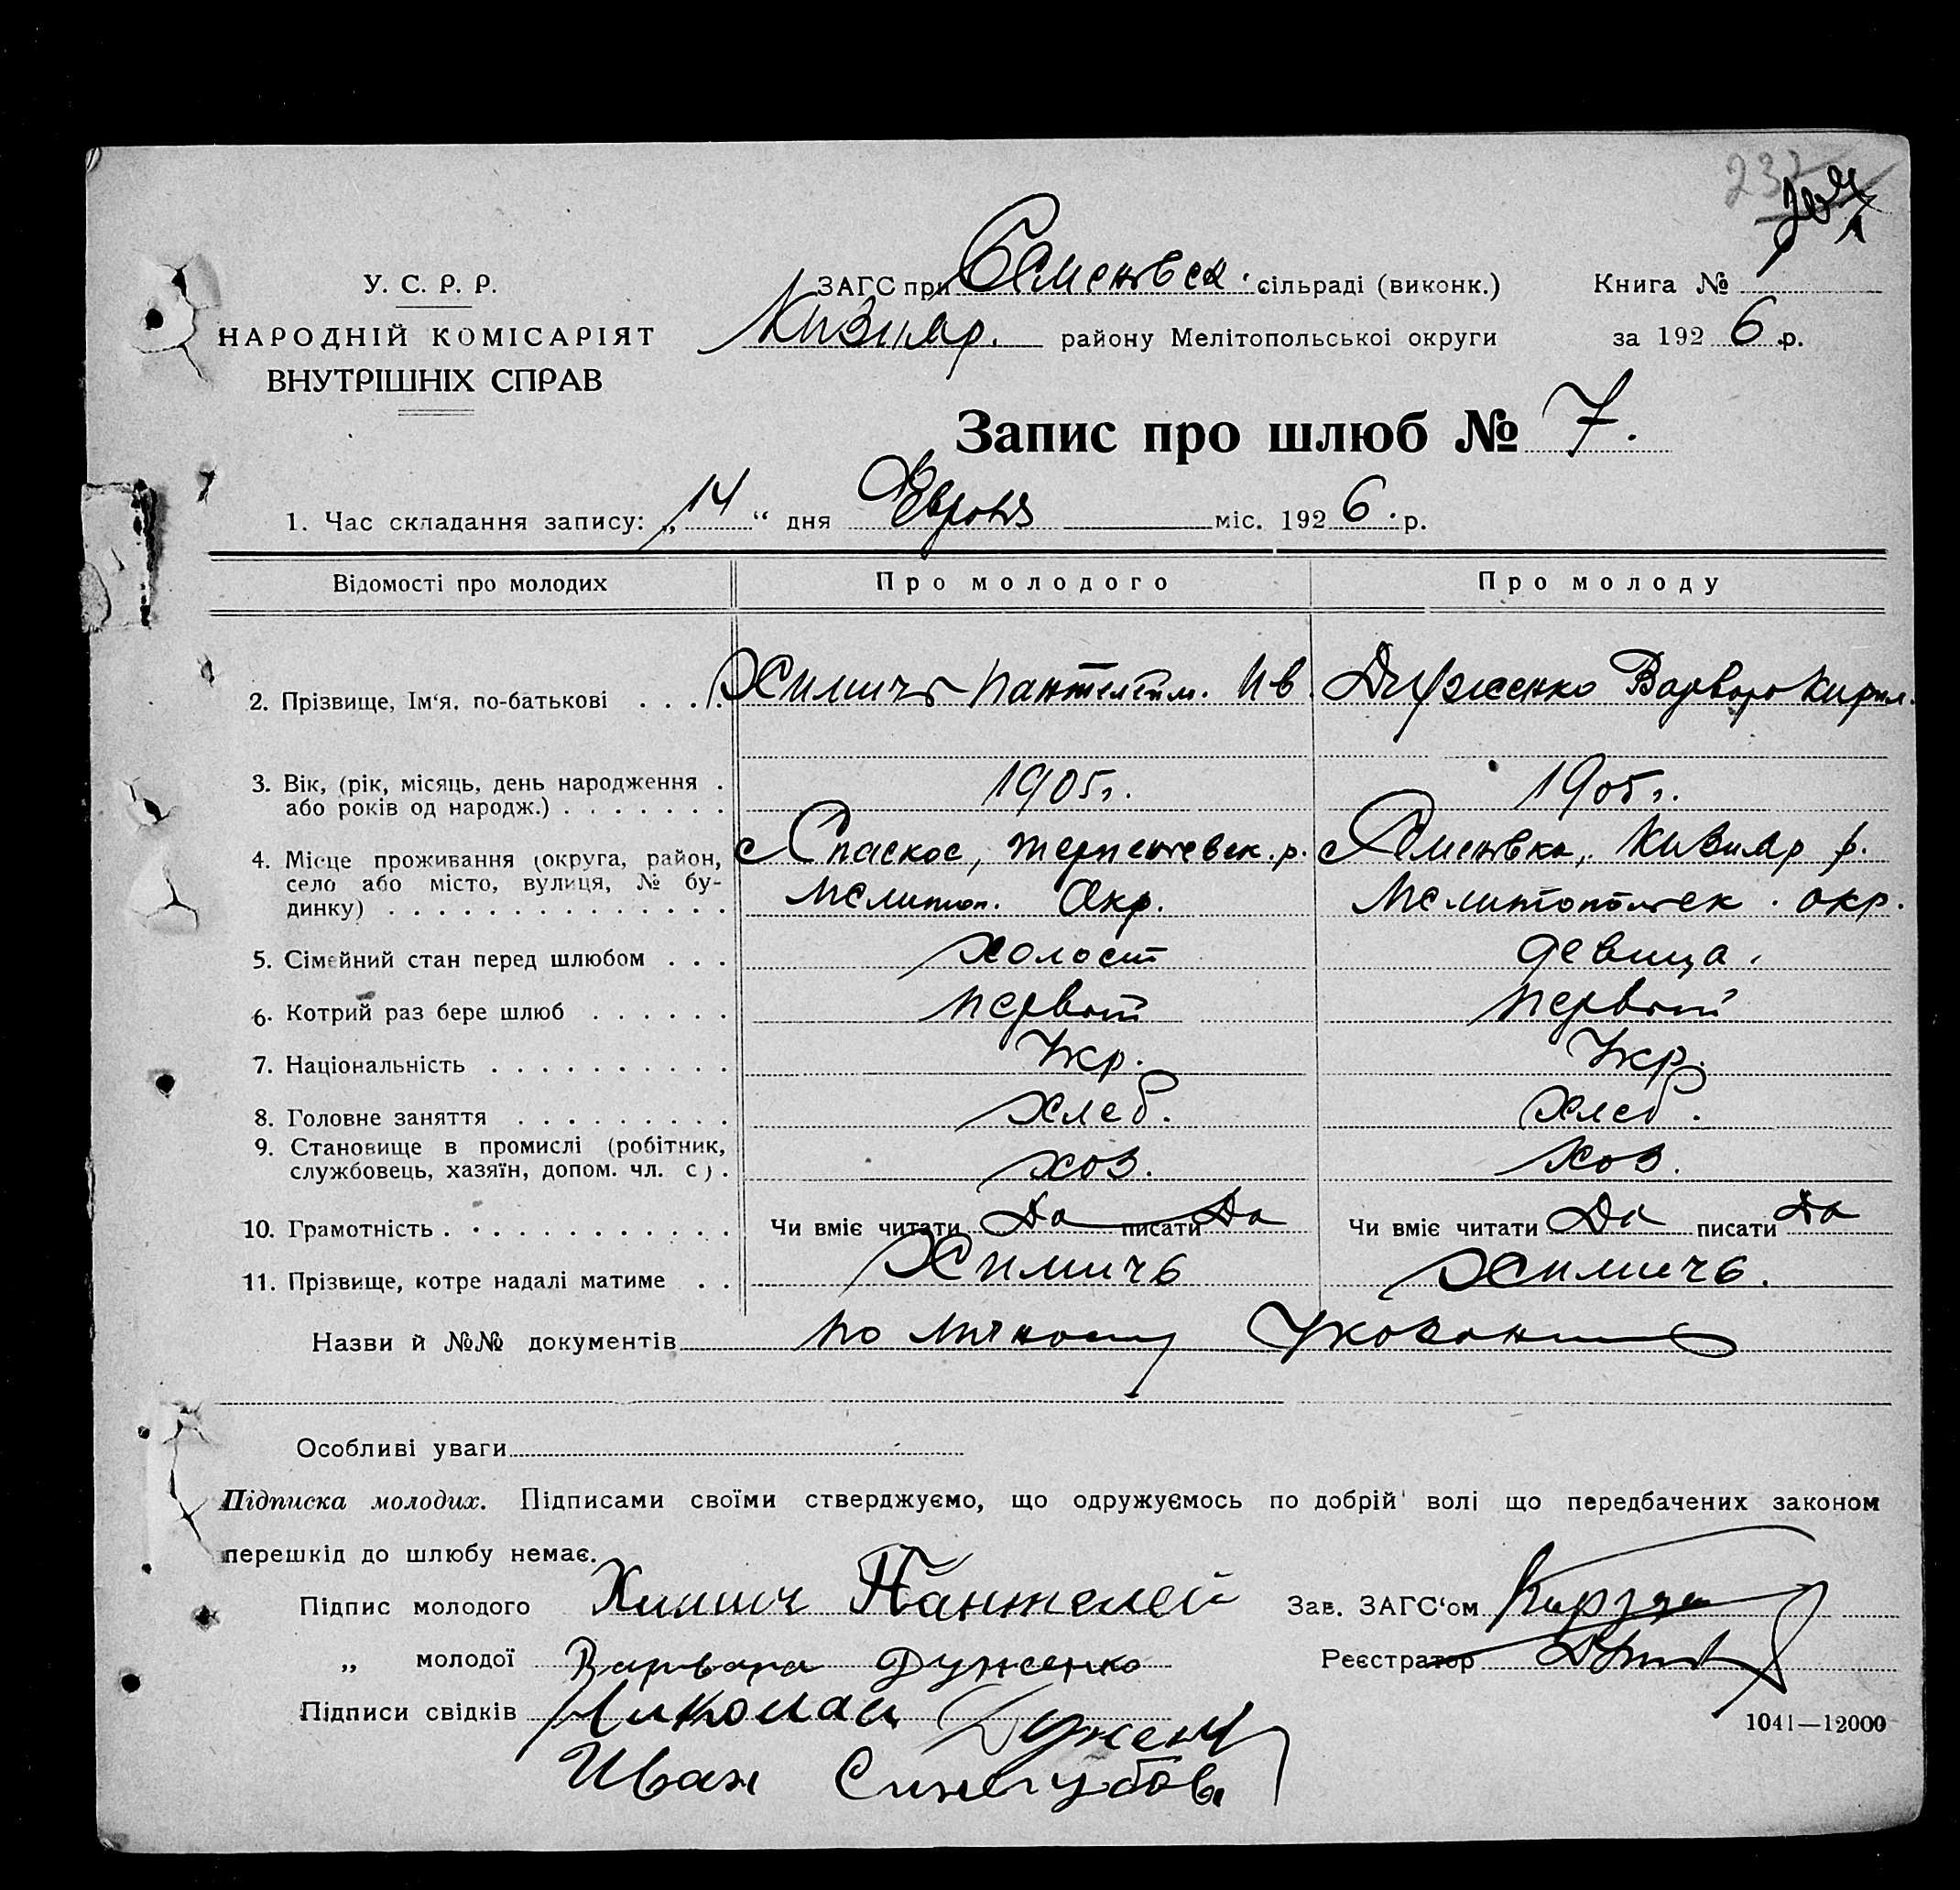 237
У. С. Р. Р.
НАРОДНІЙ КОМІСАРІЯТ
ВНУТРІШНІХ СПРАВ
ЗАГС при Семеновск. сільраді (виконк.)
Кизияр. району Мелітопольської округи
Книга №
за 1926 р.
Запис про шлюб № 7.
1. Час складання запису: „14“ дня Февроля міс. 1926. р.
Відомості про молодих
Про молодого
Про молоду
2. Прізвище, Ім‘я, по-батькові
Химичъ Пантелейм. Ив.
Дуженко Варвара Кирил.
3. Вік, (рік, місяць, день народження
або років од народж.)
1905г.
1905г.
4. Місце проживання (округа, район,
село або місто, вулиця, № бу-
динку)
с Спаское, Терпеневск. р.
Мелитоп. Окр.
с Семеновка, Кизияр р.
Мелитопольск. окр.
5. Сімейний стан перед шлюбом
холост
девица.
6. Котрий раз бере шлюб
первый
первый
7. Національність
Укр.
Укр.
8. Головне заняття
хлеб.
хлеб.
9. Становище в промислі (робітник,
службовець, хазяїн, допом. чл. с).
хоз.
хоз.
10. Грамотність
Чи вміє читати Да писати Да
Чи вміє читати Да писати Да
11. Прізвище, котре надалі матиме
Химичь
Химичь.
Назви й №№ документів по личному
Особливі уваги
Підписка молодих. Підписами своїми стверджуємо, що одружуємось по добрій волі що передбачених законом
перешкід до шлюбу немає.
Підпис молодого Химич Пантелей
Зав. ЗАГС‘ом
„ молодої Варвара Дуженко
Реєстратор
Підписи свідків Николай Дужен
Иван Синегубов
1041—12000